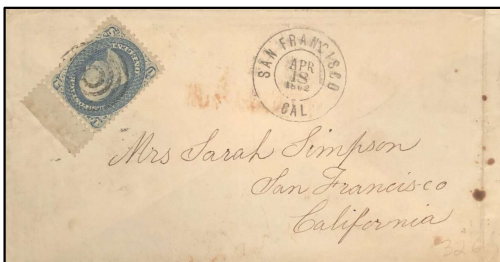 SAN FRANCISCO
APR
1862
CAL
Mrs Sarah Simpson
San Francisco
California
326